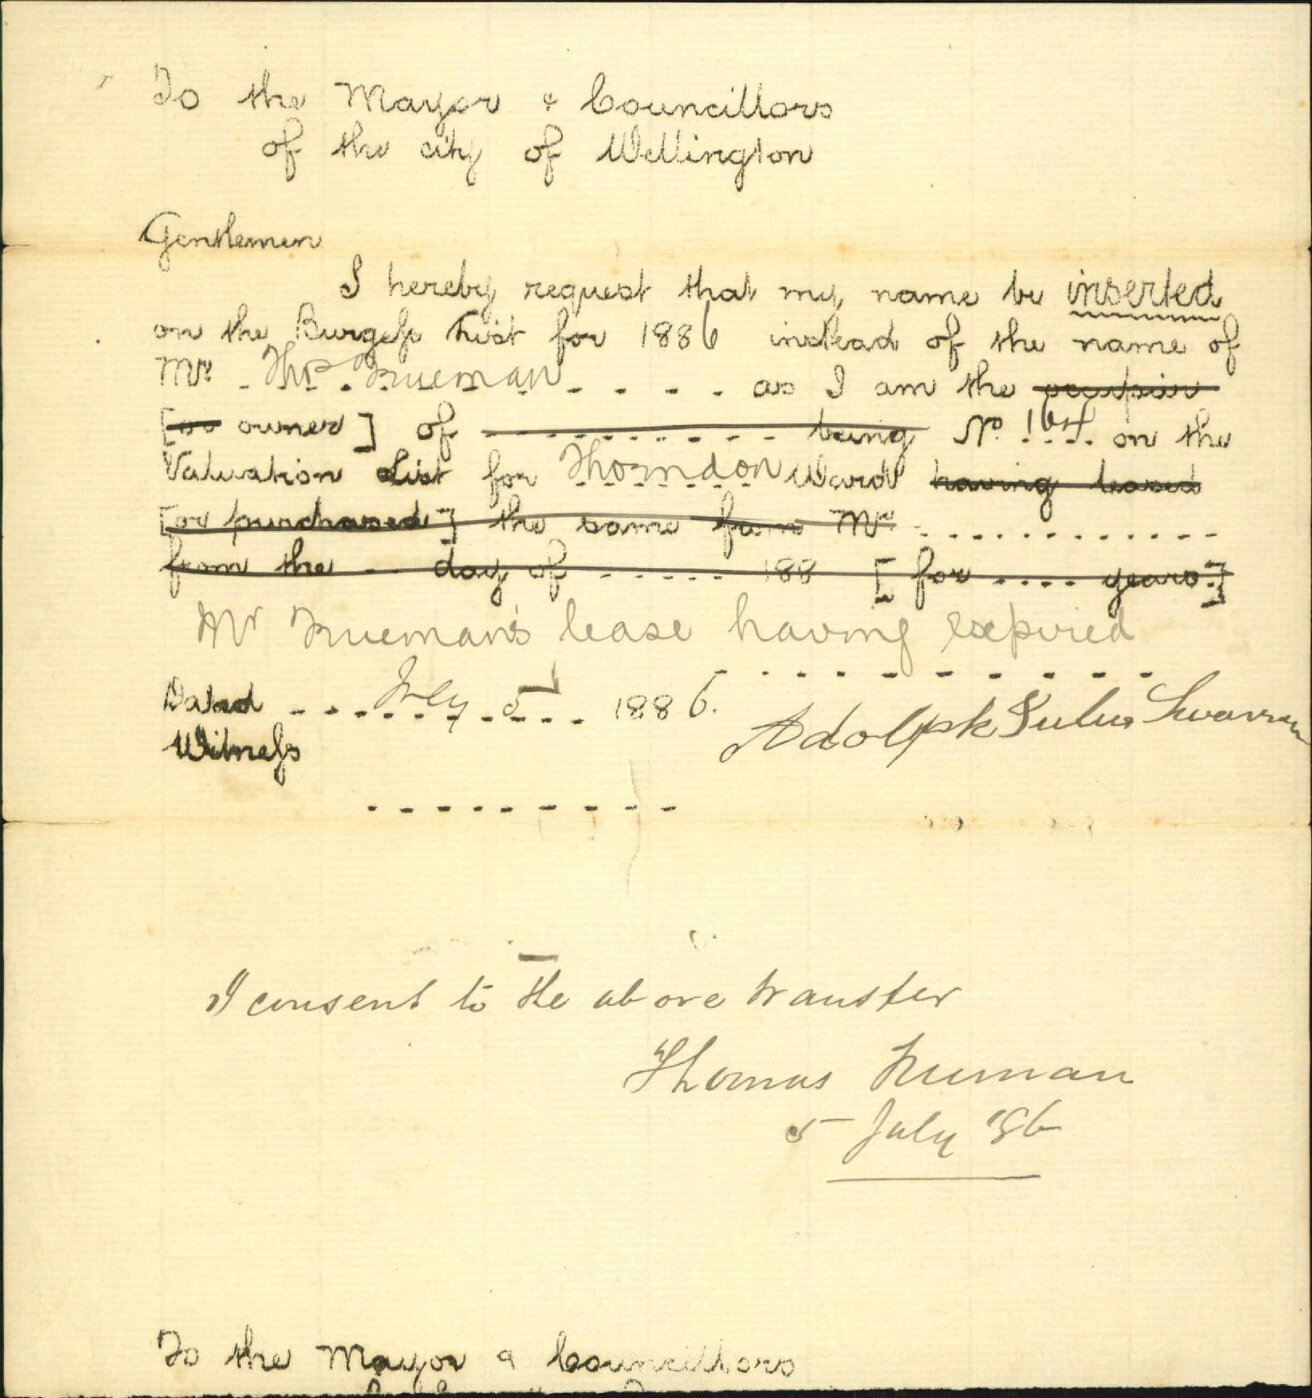 To the Mayor & Councillors
of the city of Wellington
Gentlemen
I hereby request that my name be inserted
on the Burgess List for 1886 instead of the name of
Mr. Thos Trueman as I am the occupier
[or owner] of - - - - - - - - being No. 164 on the
Valuation List for Thorndon Ward having leased
[or purchased] the same from Mr. - - - - - - - - - - - - -
from the - - day of - - - - - - 188 [for - - - - years.]
Mr Trueman's lease having expired
- - - - - - - - - - -
Dated - - July 5 - - 1886.
Witness
Adolph Julus
- - - - - - - - - -
I consent to the above transfer
Thomas Trueman
5 July '86
To the Mayor & Councillors